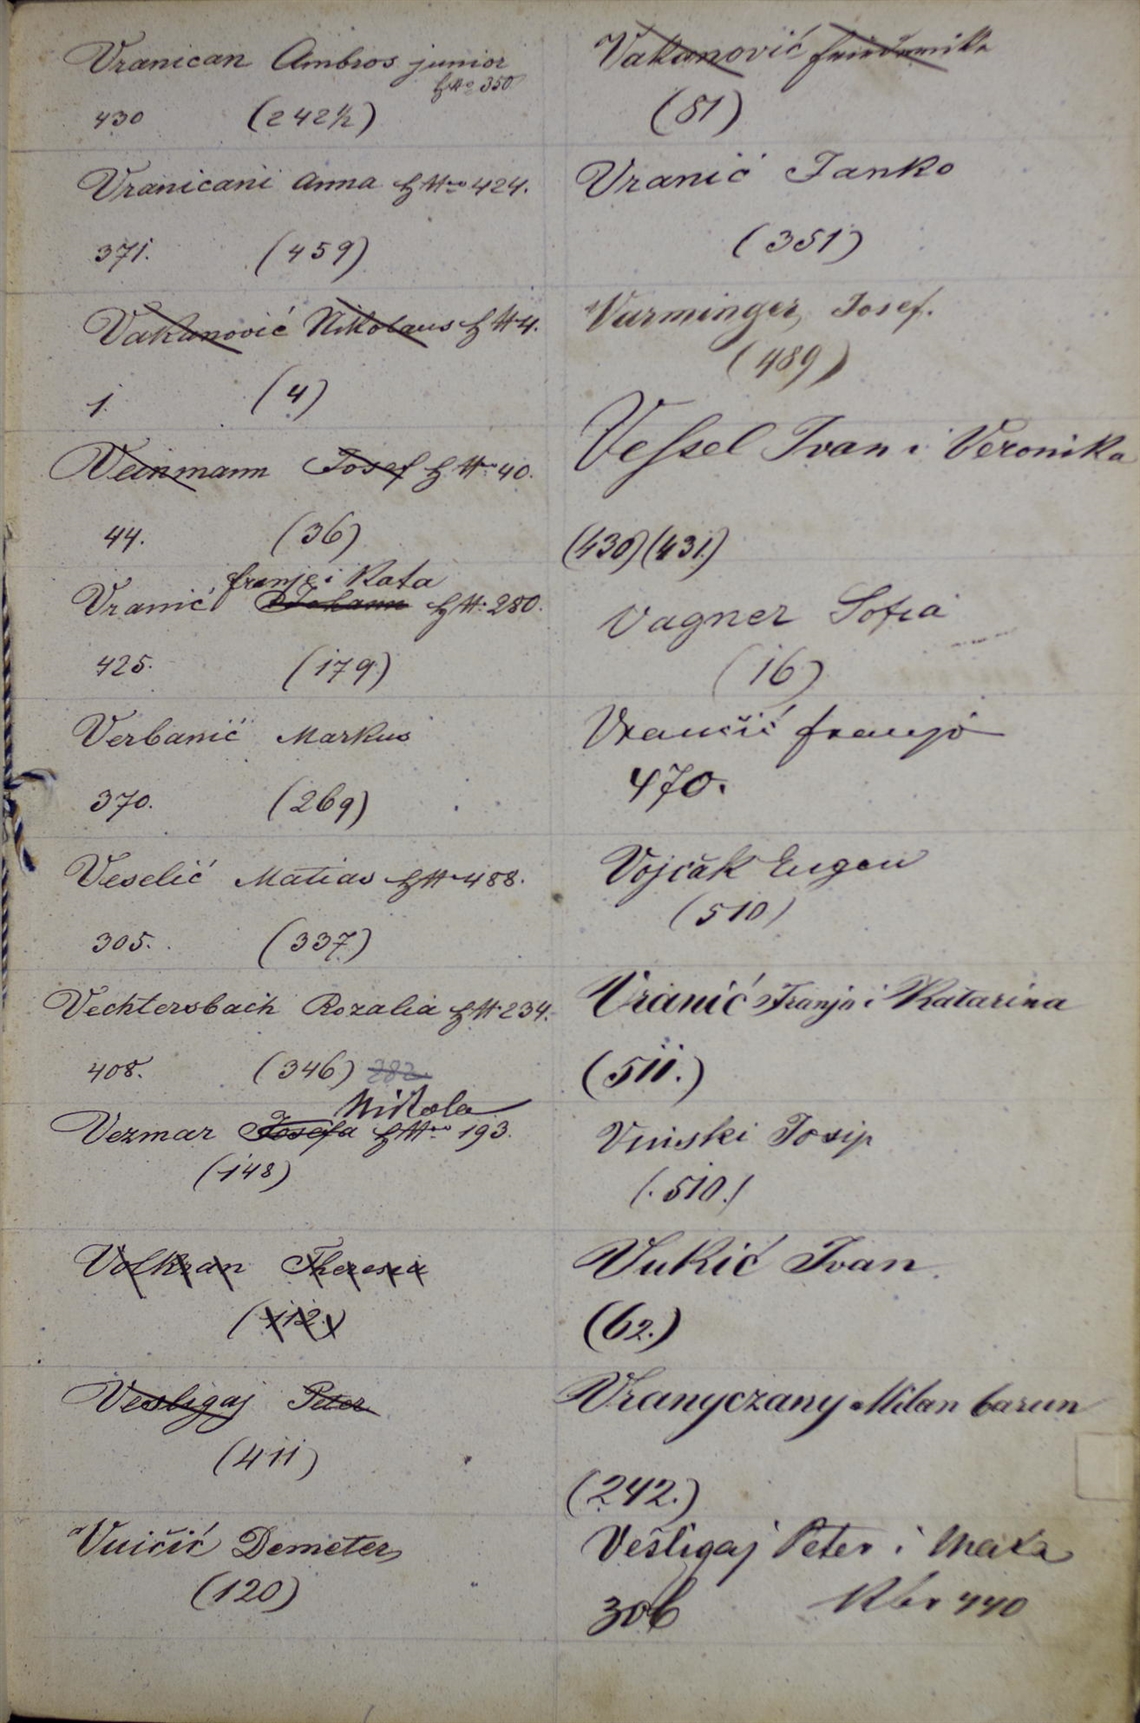 Vranican Ambros junior
H№ 350
430 (242½)
Vranicani Anna H№ 424.
371. (459)
Vakanović Nikolaus H№ 4.
1. (4)
Veinmann Josef H№ 40.
44. (36)
franje i Kata
Vranić Johann H№ 280.
425. (179.)
Verbanić Markus
370. (269)
Veselić Matias H№ 488.
305. (337)
Vechtersbach Rozalia H№ 234.
408. (346) 282
Nikola
Vezmar Josefa H№ 193.
(148)
Volkran Theresia
(112.)
Vesligaj Peter
(411)
Vuičić Demeter
(120)
Vakanović
(51)
Vranić Janko
(351)
Vurminger, Josef.
(489)
Veſsel Ivan i Veronika
(430) (431.)
Vagner Sofia
(16)
Vrančić franjo
470.
Vojčak Eugen
(510)
Vranić Franjo i Katarina
(511.)
Vinski Josip
(.510.)
Vukić Ivan.
(62.)
Vranyczany Milan barun
(242.)
Vešligaj Peter i
306 Kbr 440